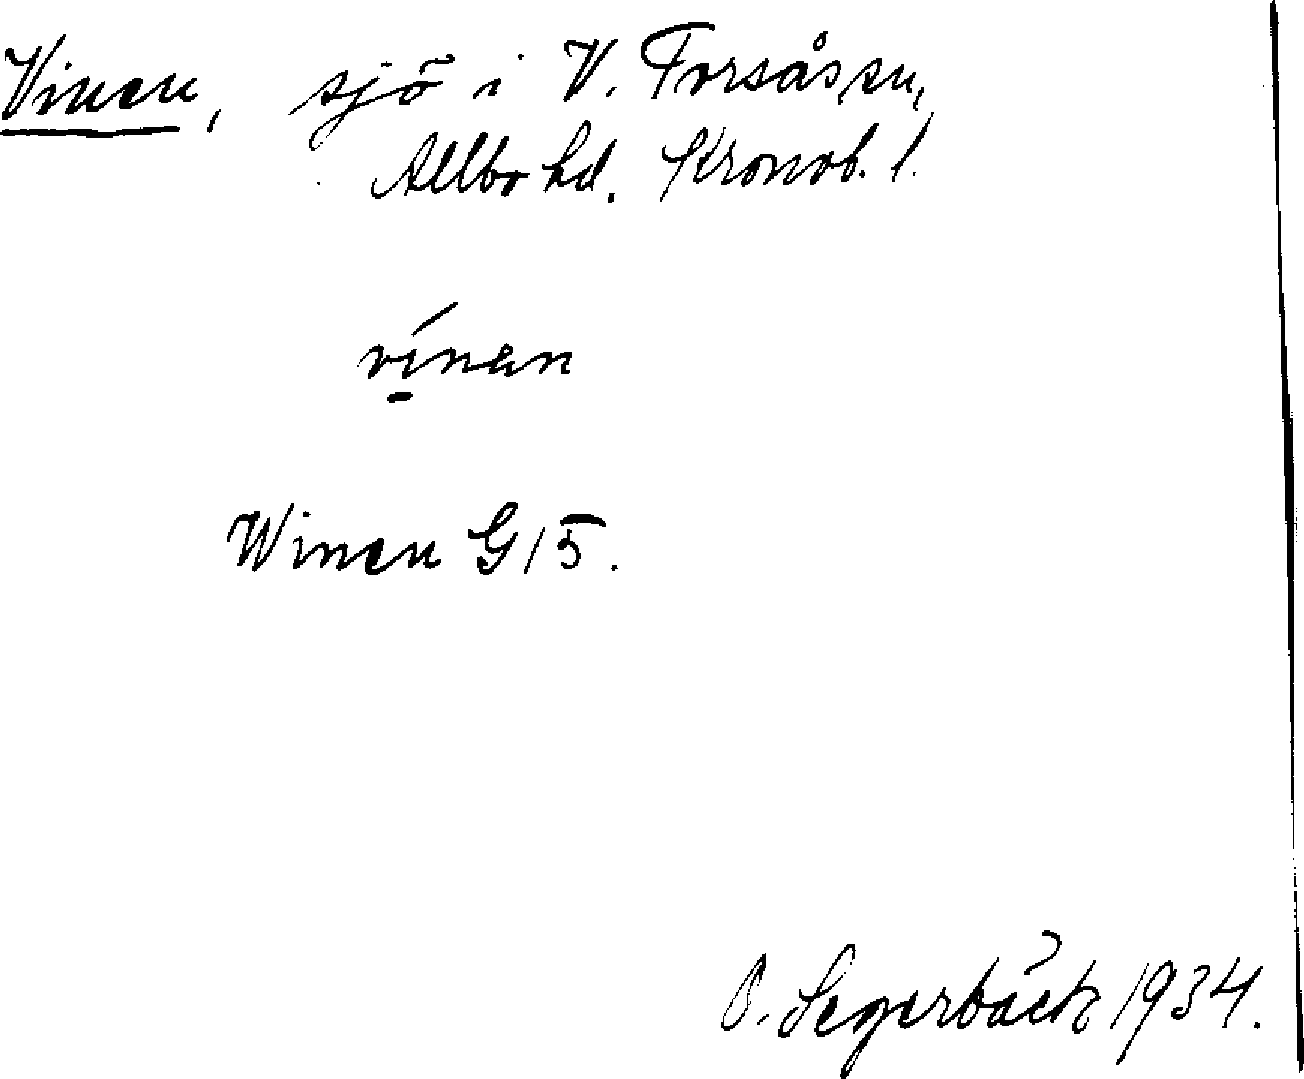 Vinen, sjö i V. Torsås sn,
Allbo hd. Kronob. l.
vínan
Winen G15.
B. Segerbäck 1934.